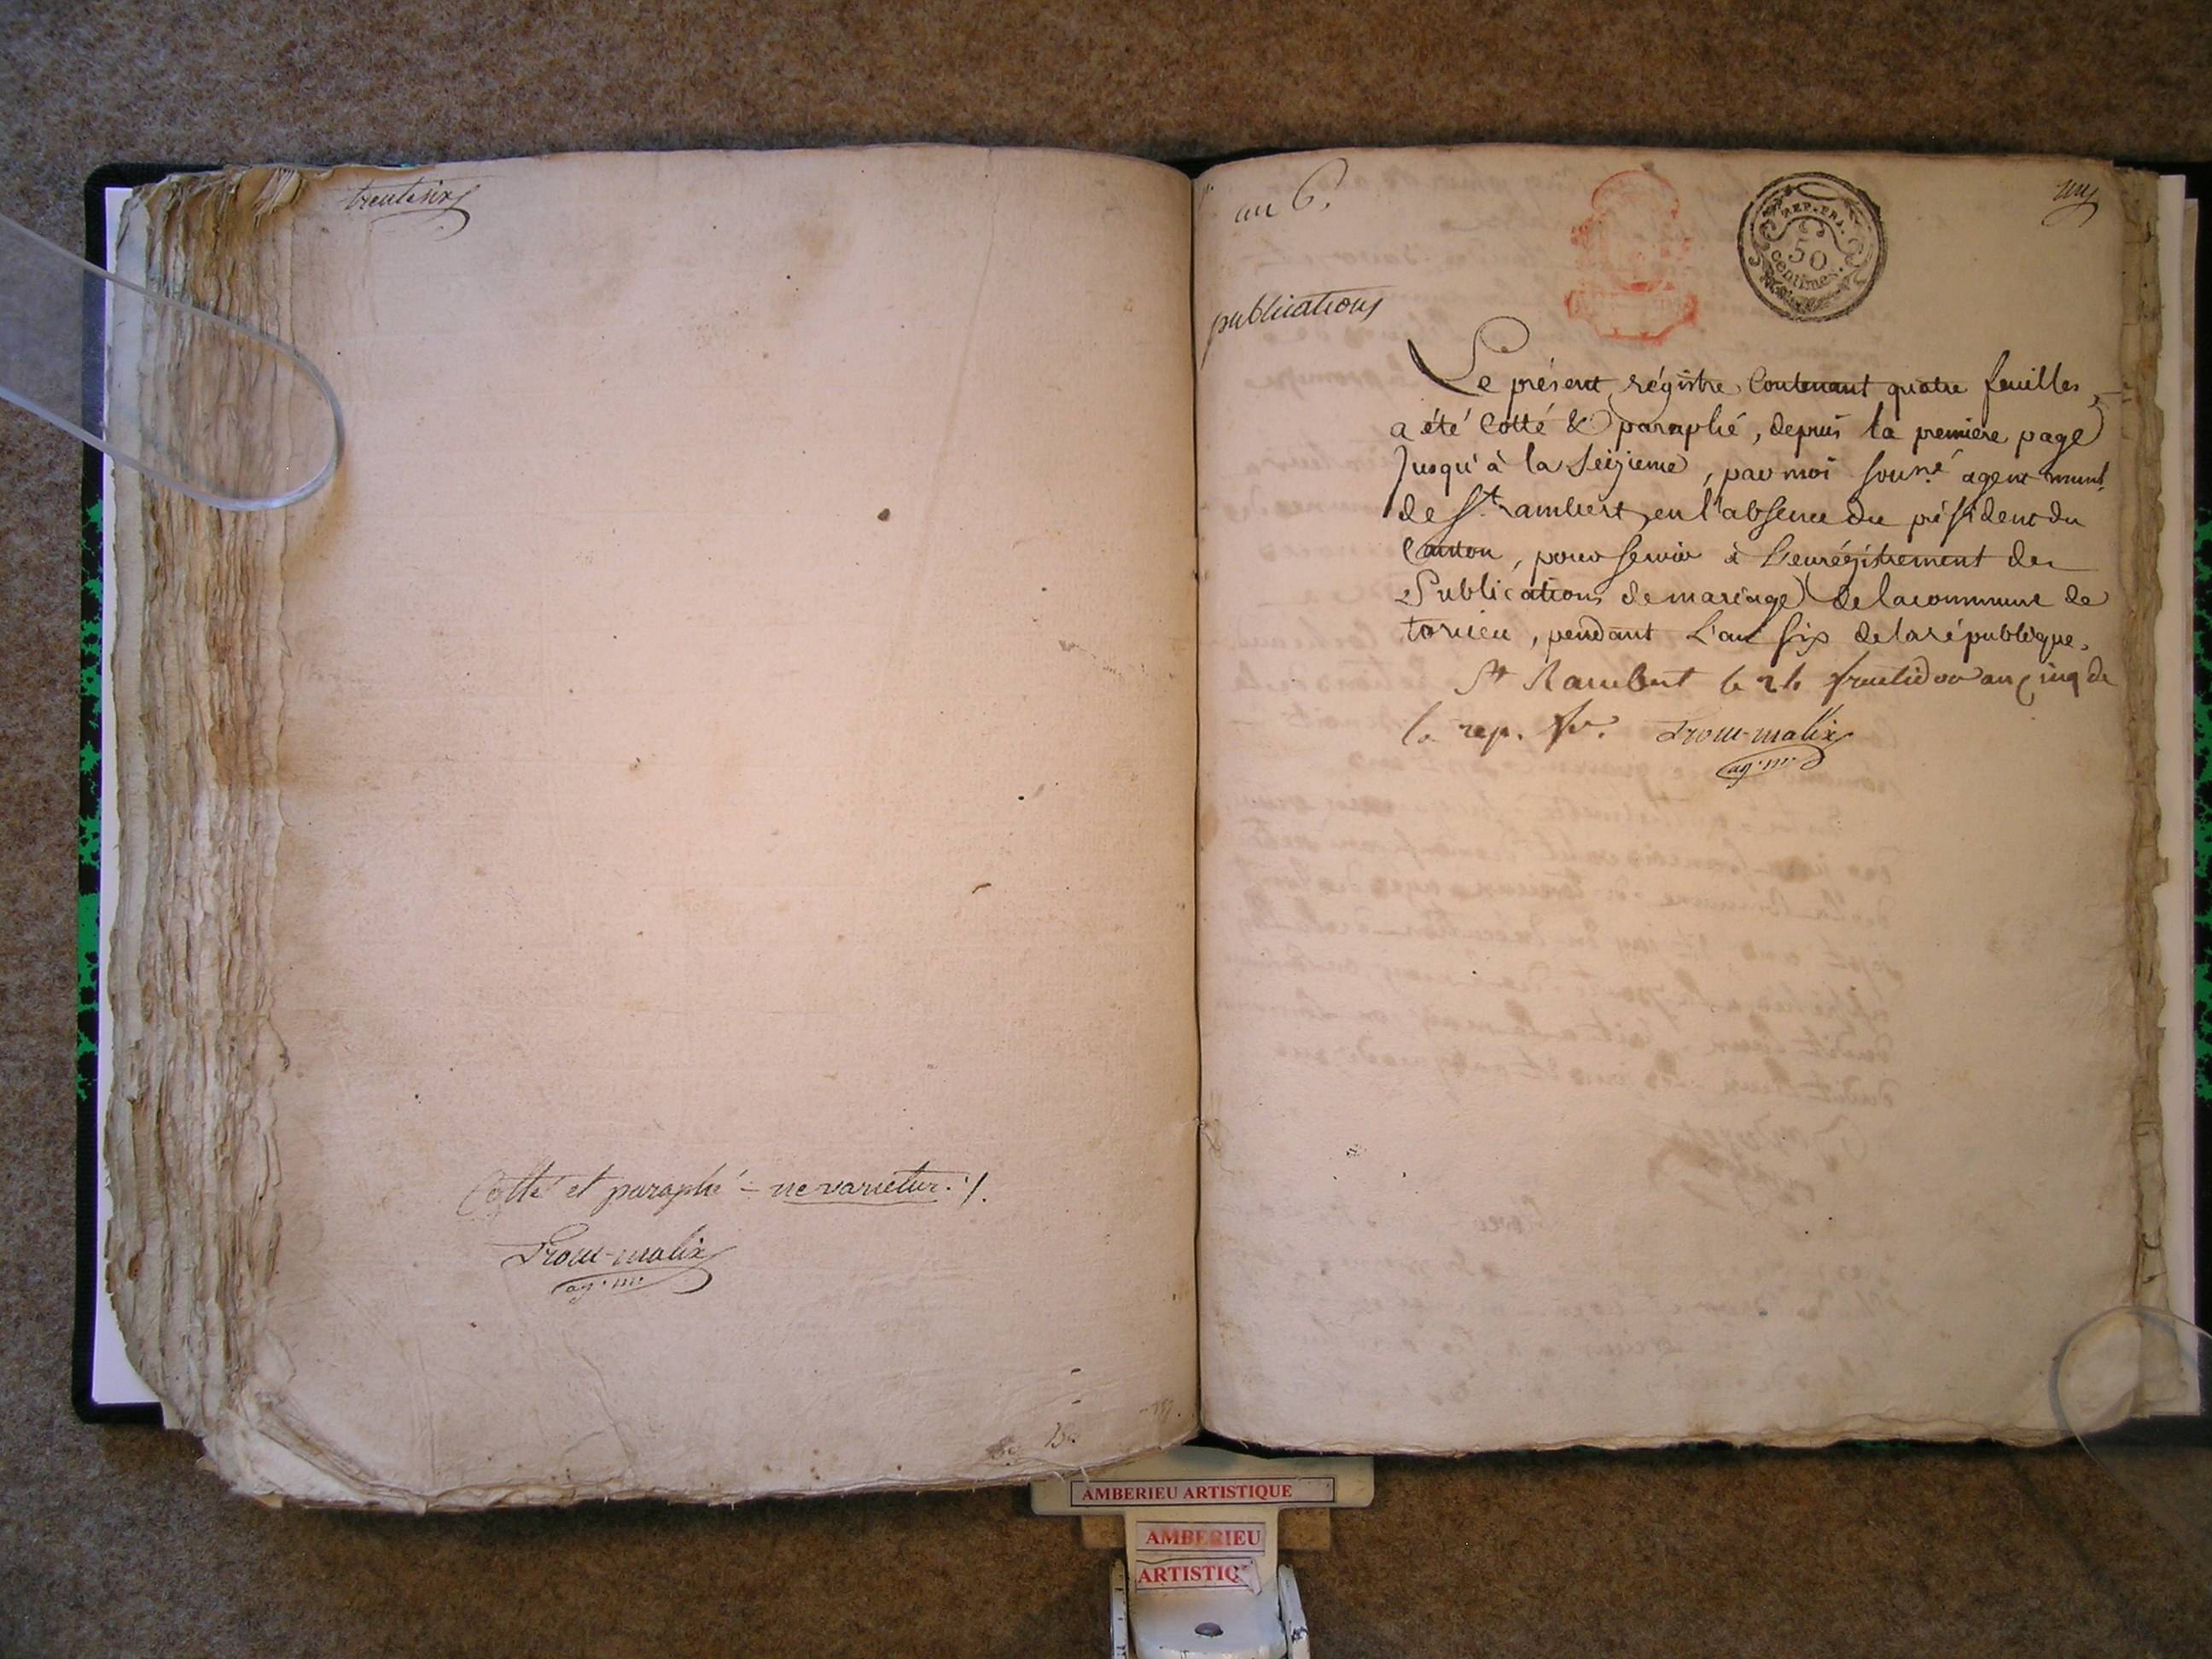 trente six
Cotté et paraphé - ne varietur ./.
Trou-malix
ag. m.
an 6.
REP. FRA.
50
centimes.
un
publications
Le présent régistre Contenant quatre feuilles,
a été Cotté & paraphé, depuis la premiere page
Jusqu'à la Seizieme, par moi souss.é agent muni.
de St. rambert, en l'absence du président du
Canton, pour servir à L'enrégistrement des
Publications de mariage de la commune de
torcieu, pendant L'an six de la république.
St Rambert le 26 fructidor an cinq de
la rep. fr. Trou-malix
ag. m.
AMBERIEU ARTISTIQUE
AMBERIEU
ARTISTIQ